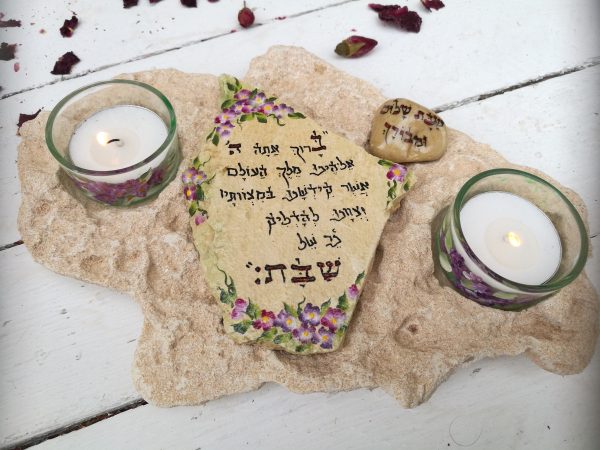 "בָּרוּךְ אַתָּה ה'
אֱלֹהֵינוּ מֶלֶךְ הָעוֹלָם
אֲשֶׁר קִידְּשָׁנוּ בְּמִצְוֹתָיו
וְצִוָּנוּ לְהַדְלִיק
נֵר שֶׁל
שַׁבָּת:"
שַׁבַּת שָׁלוֹם
וּמְבוֹרָךְ